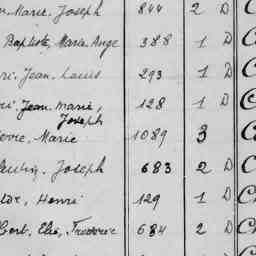 Marie, Joseph 844 2 D
Baptiste, Marie Ange 388 1 D
Jean, Louis 293 1 D
Jean Marie, Joseph 128 1 D
Marie 1089 3
Joseph 683 2 D
Henri 129 1 D
Bert, Elie, Frédéric 684 2 D